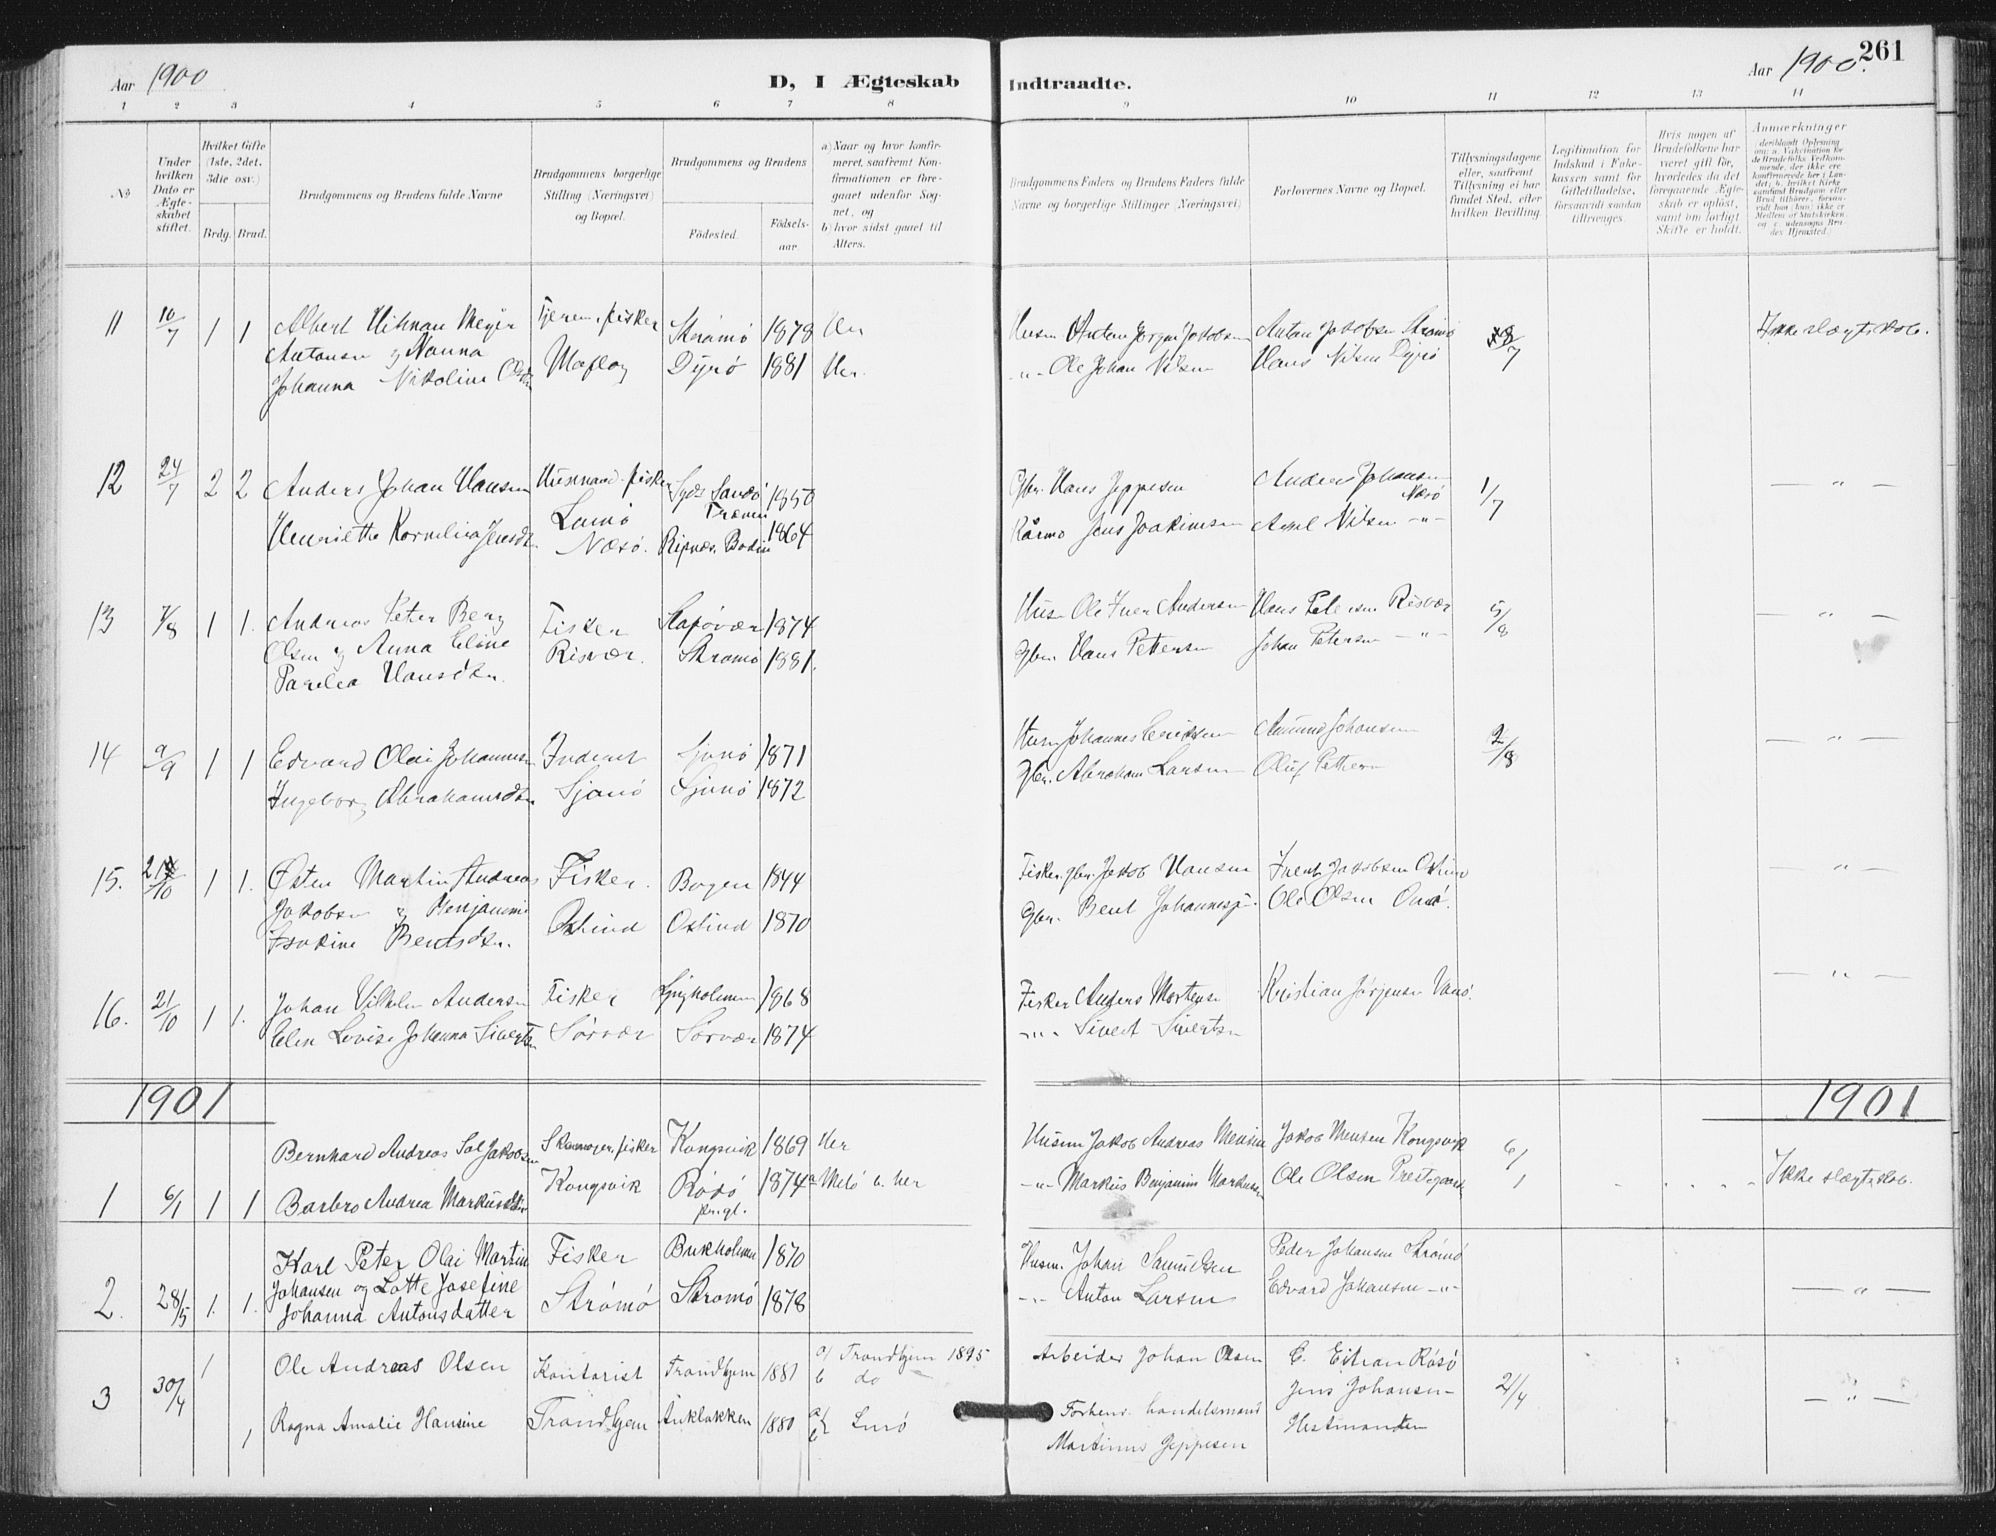 Aar 1900
D, I Ægteskab Indtraadte.
Aar 1900. 261
1 2 3 4 5 6 7 8 9 10 11 12 13 14
No
Under hvilken Dato er Ægteskabet stiftet.
Hvilket Gifte (1ste, 2det, 3die osv.)
Brdg. Brud.
Brudgommens og Brudens fulde Navne
Brudgommens borgerlige Stilling (Næringsvei) og Bopæl.
Brudgommens og Brudens
Födested.
Födselsaar
a) Naar og hvor konfirmeret, saafremt Konfirmationen er foregaaet udenfor Sognet, og
b) hvor sidst gaaet til Alters.
Brudgommens Faders og Brudens Faders fulde Navne og borgerlige Stillinger (Næringsvei)
Forlovernes Navne og Bopæl.
Tillysningsdagene eller, saafremt Tillysning ei har fundet Sted, efter hvilken Bevilling.
Legitimation for Indskud i Enkekassen samt for Giftetilladelse, forsaavidt saadan tiltrænges.
Hvis nogen af Brudefolkene har været gift för, hvorledes da det foregaaende Ægteskab er oplöst, samt om lovligt Skifte er holdt.
Anmærkninger
11 10/7 1 1 Albert Hilmar Meyer Tjener, fisker Strømø 1878 Her Husm Anton Jørgen Jakobsen Anton Jakobsen Strømø 8/7 Ikke slægtskab.
Antonsen og Nanna
Johanna Nikoline Olsdtr Dyrø 1881 Her. -"- Ole Johan Nilsen Hans Nilsen Dyrø
12 24/7 2 2 Anders Johan Hansen Husmand, fisker Sandø Træven 1850 Gbr. Hans Jeppesen Anders Johansen Næsø 1/7 — " —
Henriette Kornelia Jensdtr Lurø Næsø. Ripnæs Bodin 1864 Jens Joakimsen Axel Nilsen -"-
13 7/8 1 1. Andreas Peter Berg Fisker 1874 Hus Ole Andersen Hans Petersen Risvær 5/8 — " —
Olsen og Anna Eline Risvær. Strømø 1881. Gbr. Hans Pettersen Johan Petersen -"-
Parelia Hansdtr.
14 9/9 1 1 Edvard Olai Johannesen Inderst Sjonø 1871 Husm Johannes Eriksen Amund Johansen 2/8 — " —
Ingeborg Abrahamsdtr Sjonø Sjonø 1872 Gbr. Abraham Larsen Oluf Pettersen
15. 21/10 1 1. Østen Martin Andreas Fisker. Bogen 1844 Fisker, gbr. Jakob Hansen Jakobsen Østind — " —
Jakobsen og Benjamine Østind Østind 1870 Gbr. Bent Johannes Ole Olsen Onø.
Isakine Bentsdtr.
16. 21/10 1 1. Johan Vilhelm Andersen Fisker Lyngholmen 1868 Fisker Anders Mortensen Kristian Jørgensen Vanø. — " —
Elen Lovise Johanna Sivertsdtr Sørvær Sørvær 1874 -"- Sivert Sivertsen
1901 1901
Bernhard Andreas Sol Jakobsen fisker Kongsvik 1869 Her Husm Jakob Andreas Mensen Jakob Mensen Kongsvik 6/1
1 6/1 1 1 Barbro Andrea Markusdtr Kongsvik Rødø prgl. 1874 a Melø b. her -"- Markus Benjamin Markussen Ole Olsen Prestegaard Ikke slægtskab.
Karl Peter Olai Martin Fisker Bukholmen 1870 Husm. Johan Samuelsen Peder Johansen Strømø
2. 28/5 1. 1. Johansen og Lotte Josefine Strømø Strømø 1878 -"- Anton Larsen Edvard Johansen -"- — " —
Johanna Antonsdatter
3 30/4 1 Ole Andreas Olsen Kontorist Trondhjem 1881 a/ Trondhjem 1895 b do Arbeider Johan Olsen E. Eithan Rødø 21/4 — " —
1 Ragna Amalie Hansine Trondhjem Anklakken 1880 a/b Lurø Forhenv. handelsmand Martinus Jeppesen Jens Johansen Hestmanden